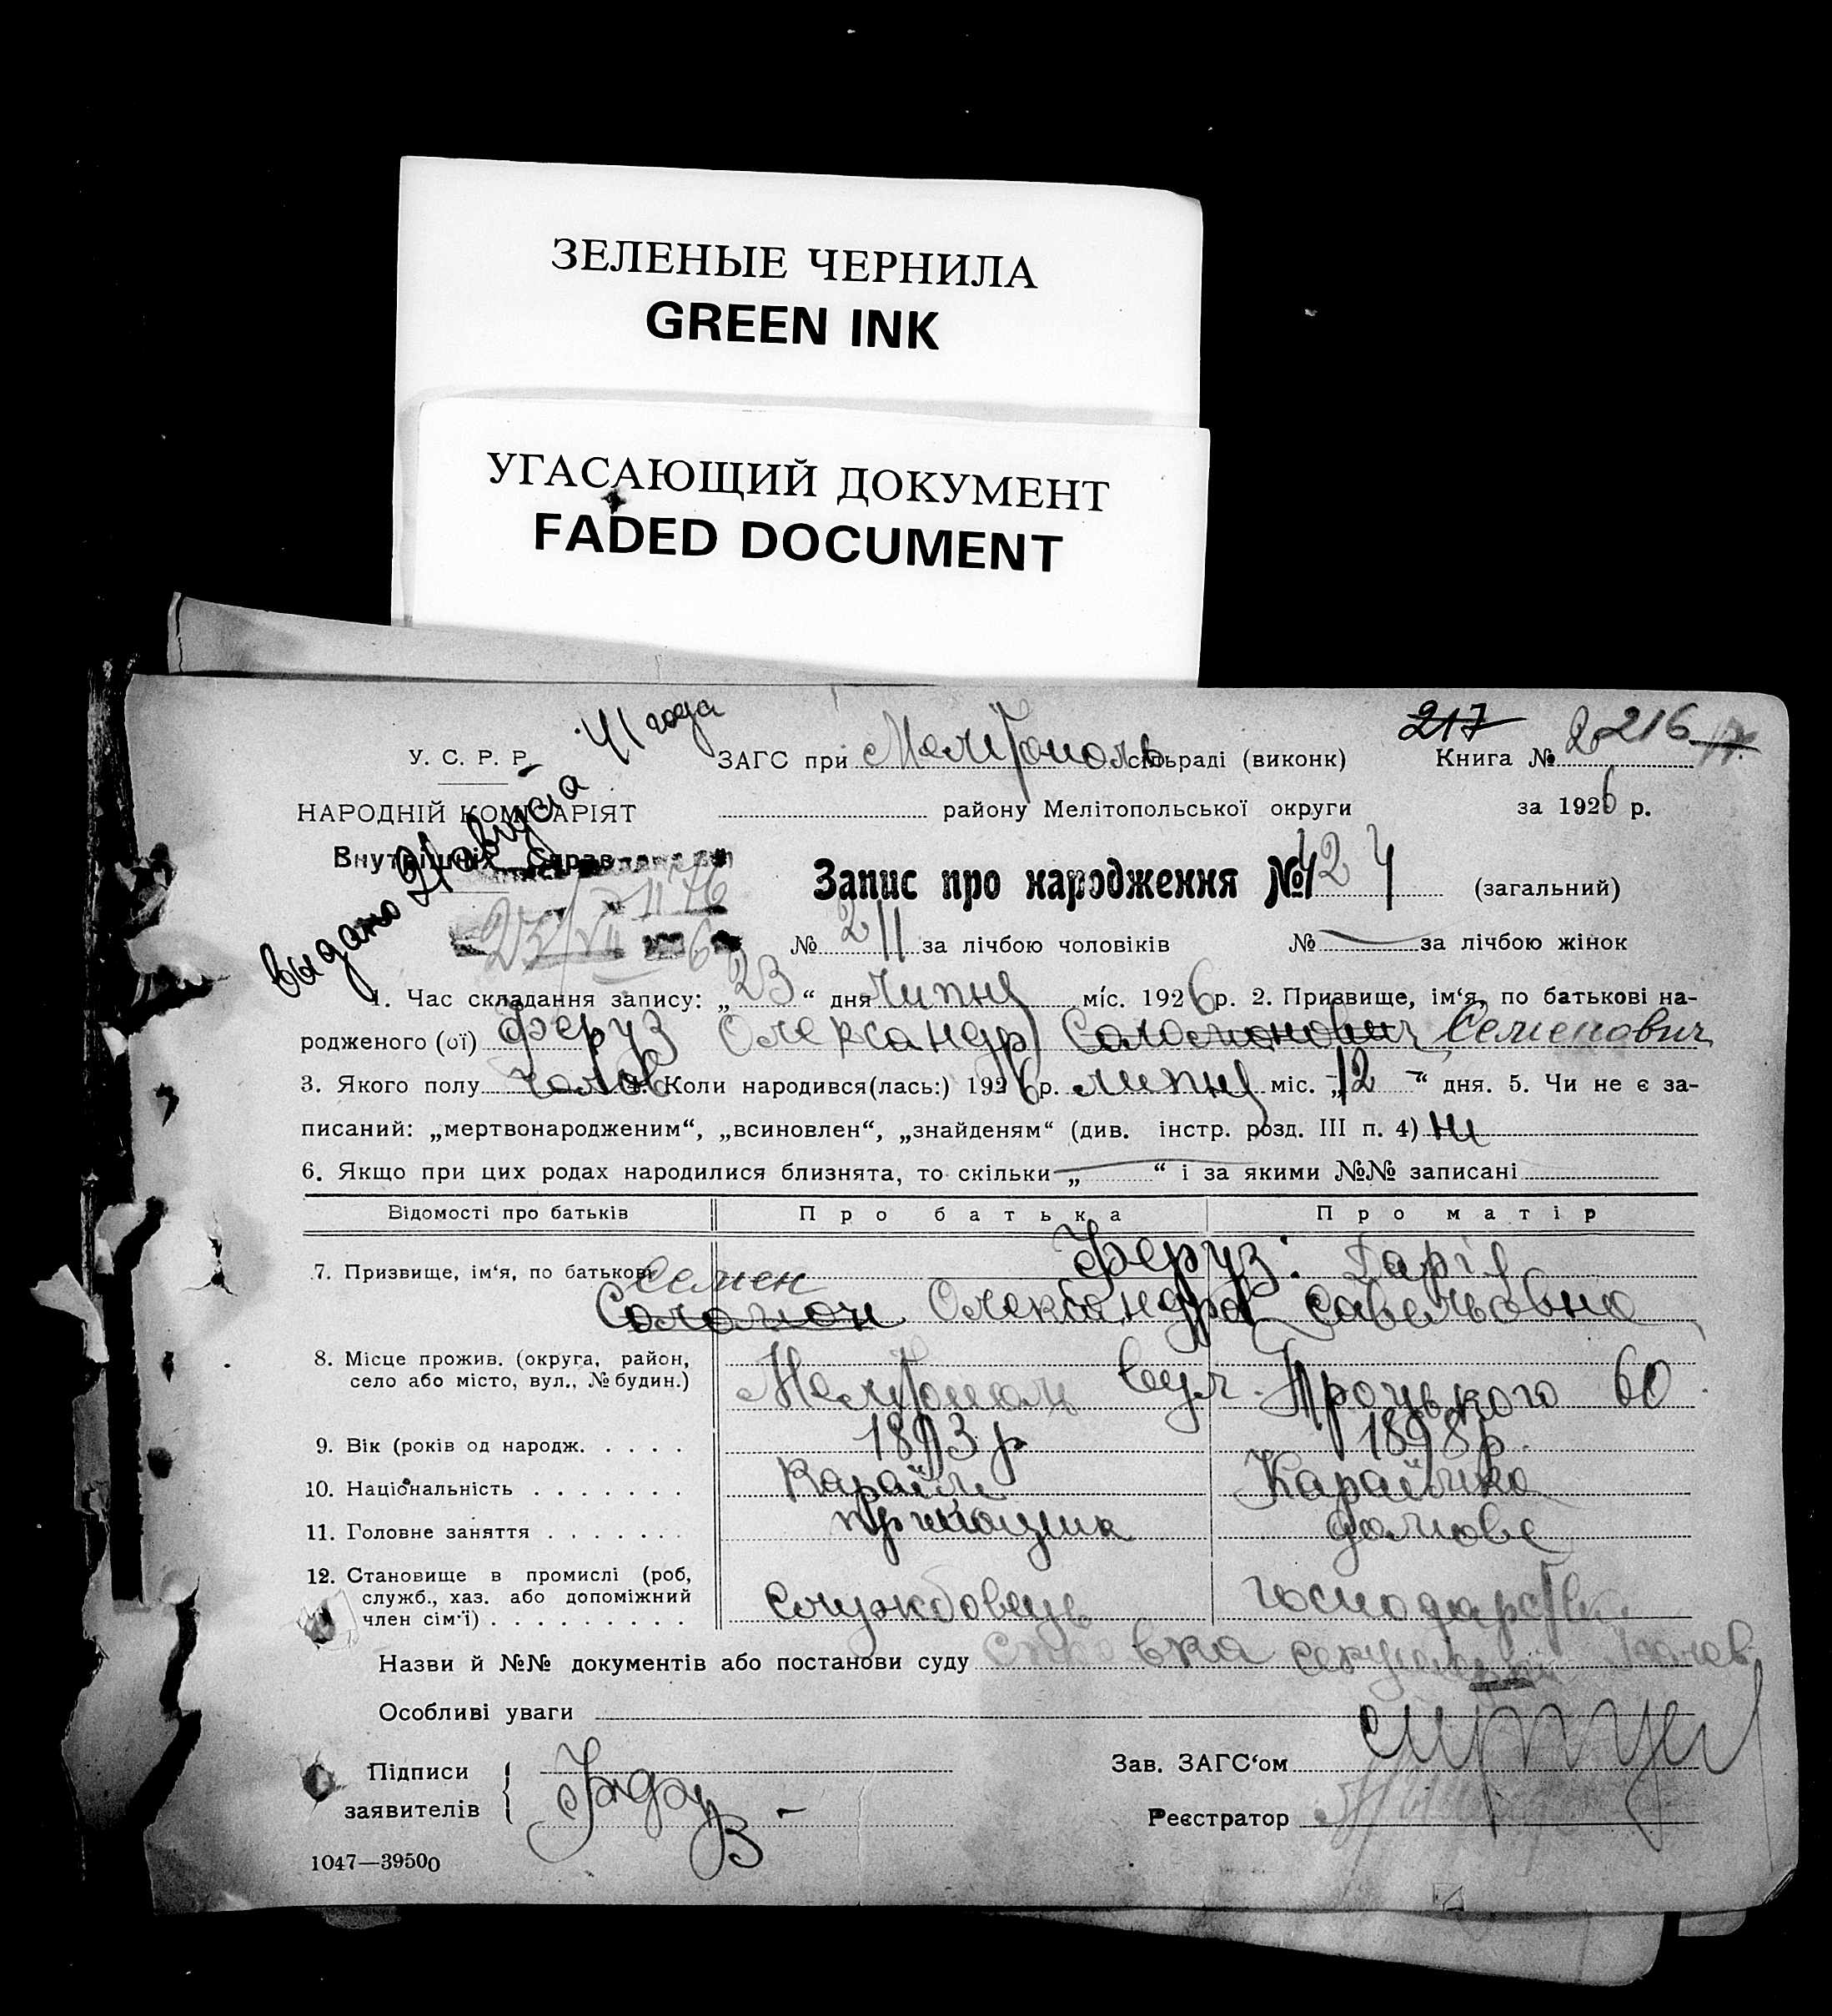 ЗЕЛЕНЫЕ ЧЕРНИЛА
GREEN INK
УГАСАЮЩИЙ ДОКУМЕНТ
FADED DOCUMENT
217 216
У. С. Р. Р. ЗАГС при Мелітополь сільраді (виконк) Книга № 2
НАРОДНІЙ КОМІСАРІЯТ района Мелітопольської округи за 1926 р.
Внутрішніх Справ
выдано 21 августа 41 года
Запис про народження № 424 (загальний)
№ 211 за лічбою чоловіків № за лічбою жінок
1. Час складання запису: „23“ дня липня міс. 1926 р. 2. Призвище, ім‘я, по батькові на-
родженого (ої) Феруз Олександр Соломонович Семенович
3. Якого полу чолов 4. Коли народився(лась:) 1926 р. липня міс. „12“ дня. 5. Чи не є за-
писаний: „мертвонародженим“, „всиновлен“, „знайденям“ (див. інстр. розд. III п. 4) ні
6. Якщо при цих родах народилися близнята, то скільки „ “ і за якими №№ записані
Відомості про батьків Про батька Про матір
7. Призвище, ім‘я, по батькові Семен Феруз: Дарія
Соломон Олександров Савельовна
8. Місце прожив. (округа, район,
село або місто, вул., № будин.) Мелітополь вул. Троцького 60
9. Вік (років од народж. . . . . 1893 р 1898 р.
10. Національність . . . . . . . Караїм Караїмка
11. Головне заняття . . . . . . . приказщик домове
12. Становище в промислі (роб,
служб., хаз. або допоміжний
член сім‘ї) . . . . . . . . . службовець господарство
Назви й №№ документів або постанови суду
Особливі уваги
Підписи
заявителів
Зав. ЗАГС‘ом
Реєстратор
1047—39500